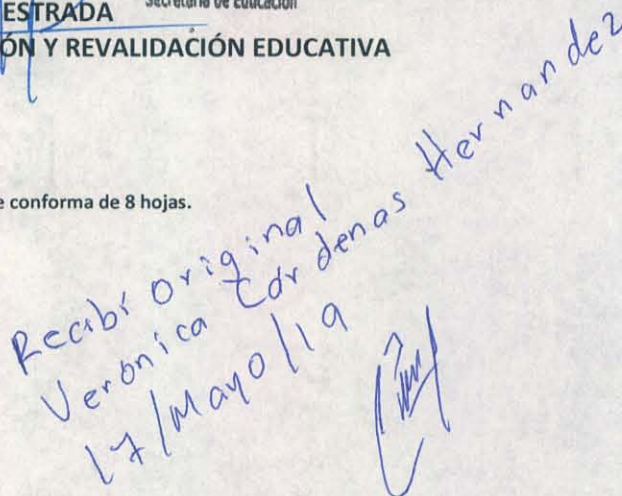 Secretaría de Educación
ESTRADA
ÓN Y REVALIDACIÓN EDUCATIVA
e conforma de 8 hojas.
Recibí Original
Verónica Cárdenas Hernandez
17/Mayo/19